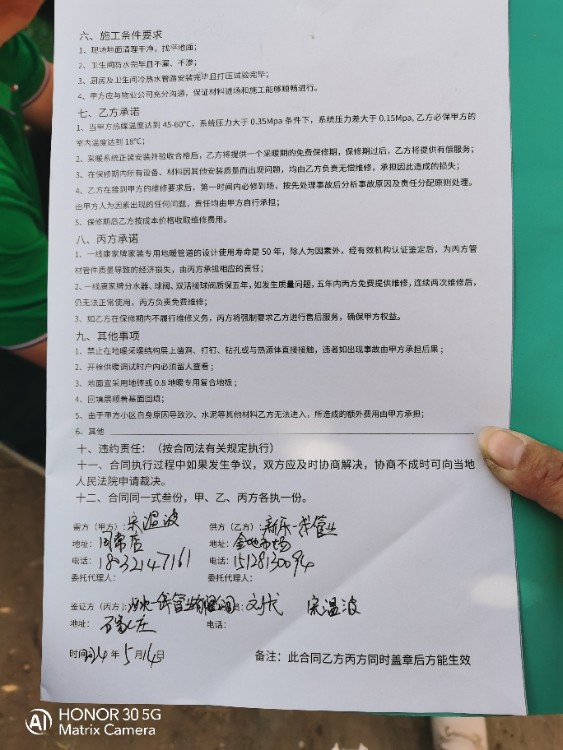 六、施工条件要求
1、现场地面清理干净，找平地面；
2、卫生间防水完毕且不漏、不渗；
3、厨房及卫生间冷热水管路安装完毕且打压试验完毕；
4、甲方应与物业公司充分沟通，保证材料进场和施工能够顺畅进行。
七、乙方承诺
1、当甲方热媒温度达到 45-60℃，系统压力大于 0.35Mpa 条件下，系统压力差大于 0.15Mpa，乙方必保甲方的
室内温度达到 18℃；
2、采暖系统正装安装并验收合格后，乙方将提供一个采暖期的免费保修期，保修期过后，乙方将提供有偿服务；
3、在保修期内所有设备、材料因其他安装质量而出现问题，均由乙方负责无偿维修，承担因此造成的损失；
4、乙方在接到甲方的维修要求后，第一时间内必修到场，按先处理事故后分析事故原因及责任分配原则处理。
由甲方人为因素出现的任何问题，责任均由甲方自行承担；
5、保修期后乙方按成本价格收取维修费用。
八、丙方承诺
1、一线康家牌家装专用地暖管道的设计使用寿命是 50 年，除人为因素外，经有效机构认证鉴定后，为丙方管
材管件质量导致的经济损失，由丙方承担相应的责任；
2、一线康家牌分水器、球阀、双活接球阀质保五年，如发生质量问题，五年内丙方免费提供维修，连续两次维修后，
仍无法正常使用，丙方负责免费维修；
3、如乙方在保修期内不履行维修义务，丙方将强制要求乙方进行售后服务，确保甲方权益。
九、其他事项
1、禁止在地暖采暖结构层上凿洞、打钉、钻孔或与热源体直接接触，违者如出现事故由甲方承担后果；
2、开栓供暖调试时户内必须留人查看；
3、地面宜采用地砖或 0.8 地暖专用复合地板；
4、回填层顺着墓面回填；
5、由于甲方小区自身原因导致沙、水泥等其他材料乙方无法进入，所造成的额外费用由甲方承担；
6、其他
十、违约责任：（按合同法有关规定执行）
十一、合同执行过程中如果发生争议，双方应及时协商解决，协商不成时可向当地
人民法院申请裁决。
十二、合同同一式叁份，甲、乙、丙方各执一份。
需方（甲方）：宋温波 供方（乙方）：新乐一线管业
地址： 地址：
电话：18032147161 电话：15128130094
委托代理人： 委托代理人：
鉴证方（丙方）： 宋温波
地址：石家庄 电话：
时间 24 年 5 月 14 日 备注：此合同乙方丙方同时盖章后方能生效
AI HONOR 30 5G
Matrix Camera